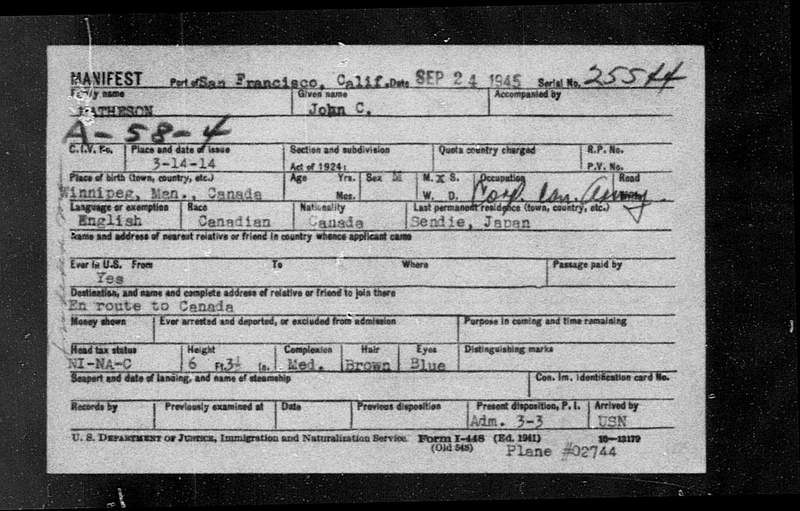 MANIFEST Port of San Francisco, Calif. Date SEP 24 1945 Serial No. 25544
Family name Given name Accompanied by
MATHESON John C.
A-58-4
C.I.V. No. Place and date of issue Section and subdivision Quota country charged R.P. No.
3-14-14 Act of 1924: P.V. No.
Place of birth (town, country, etc.) Age Yrs. Sex M M. X S. Occupation Read
Winnipeg, Man., Canada Mos. W. D. Corp. Can. Army
Language or exemption Race Nationality Last permanent residence (town, country, etc.)
English Canadian Canada Sendie, Japan
Name and address of nearest relative or friend in country whence applicant came
Ever in U.S. From To Where Passage paid by
Yes
Destination, and name and complete address of relative or friend to join there
En route to Canada
Money shown Ever arrested and deported, or excluded from admission Purpose in coming and time remaining
Head tax status Height Complexion Hair Eyes Distinguishing marks
NI-NA-C 6 Ft. 3½ In. Med. Brown Blue
Seaport and date of landing, and name of steamship Con. Im. Identification card No.
Records by Previously examined at Date Previous disposition Present disposition, P. I. Arrived by
Adm. 3-3 USN
U. S. DEPARTMENT OF JUSTICE, Immigration and Naturalization Service. Form I-448 (Ed. 1941) 16-13179
(Old 548) Plane #02744